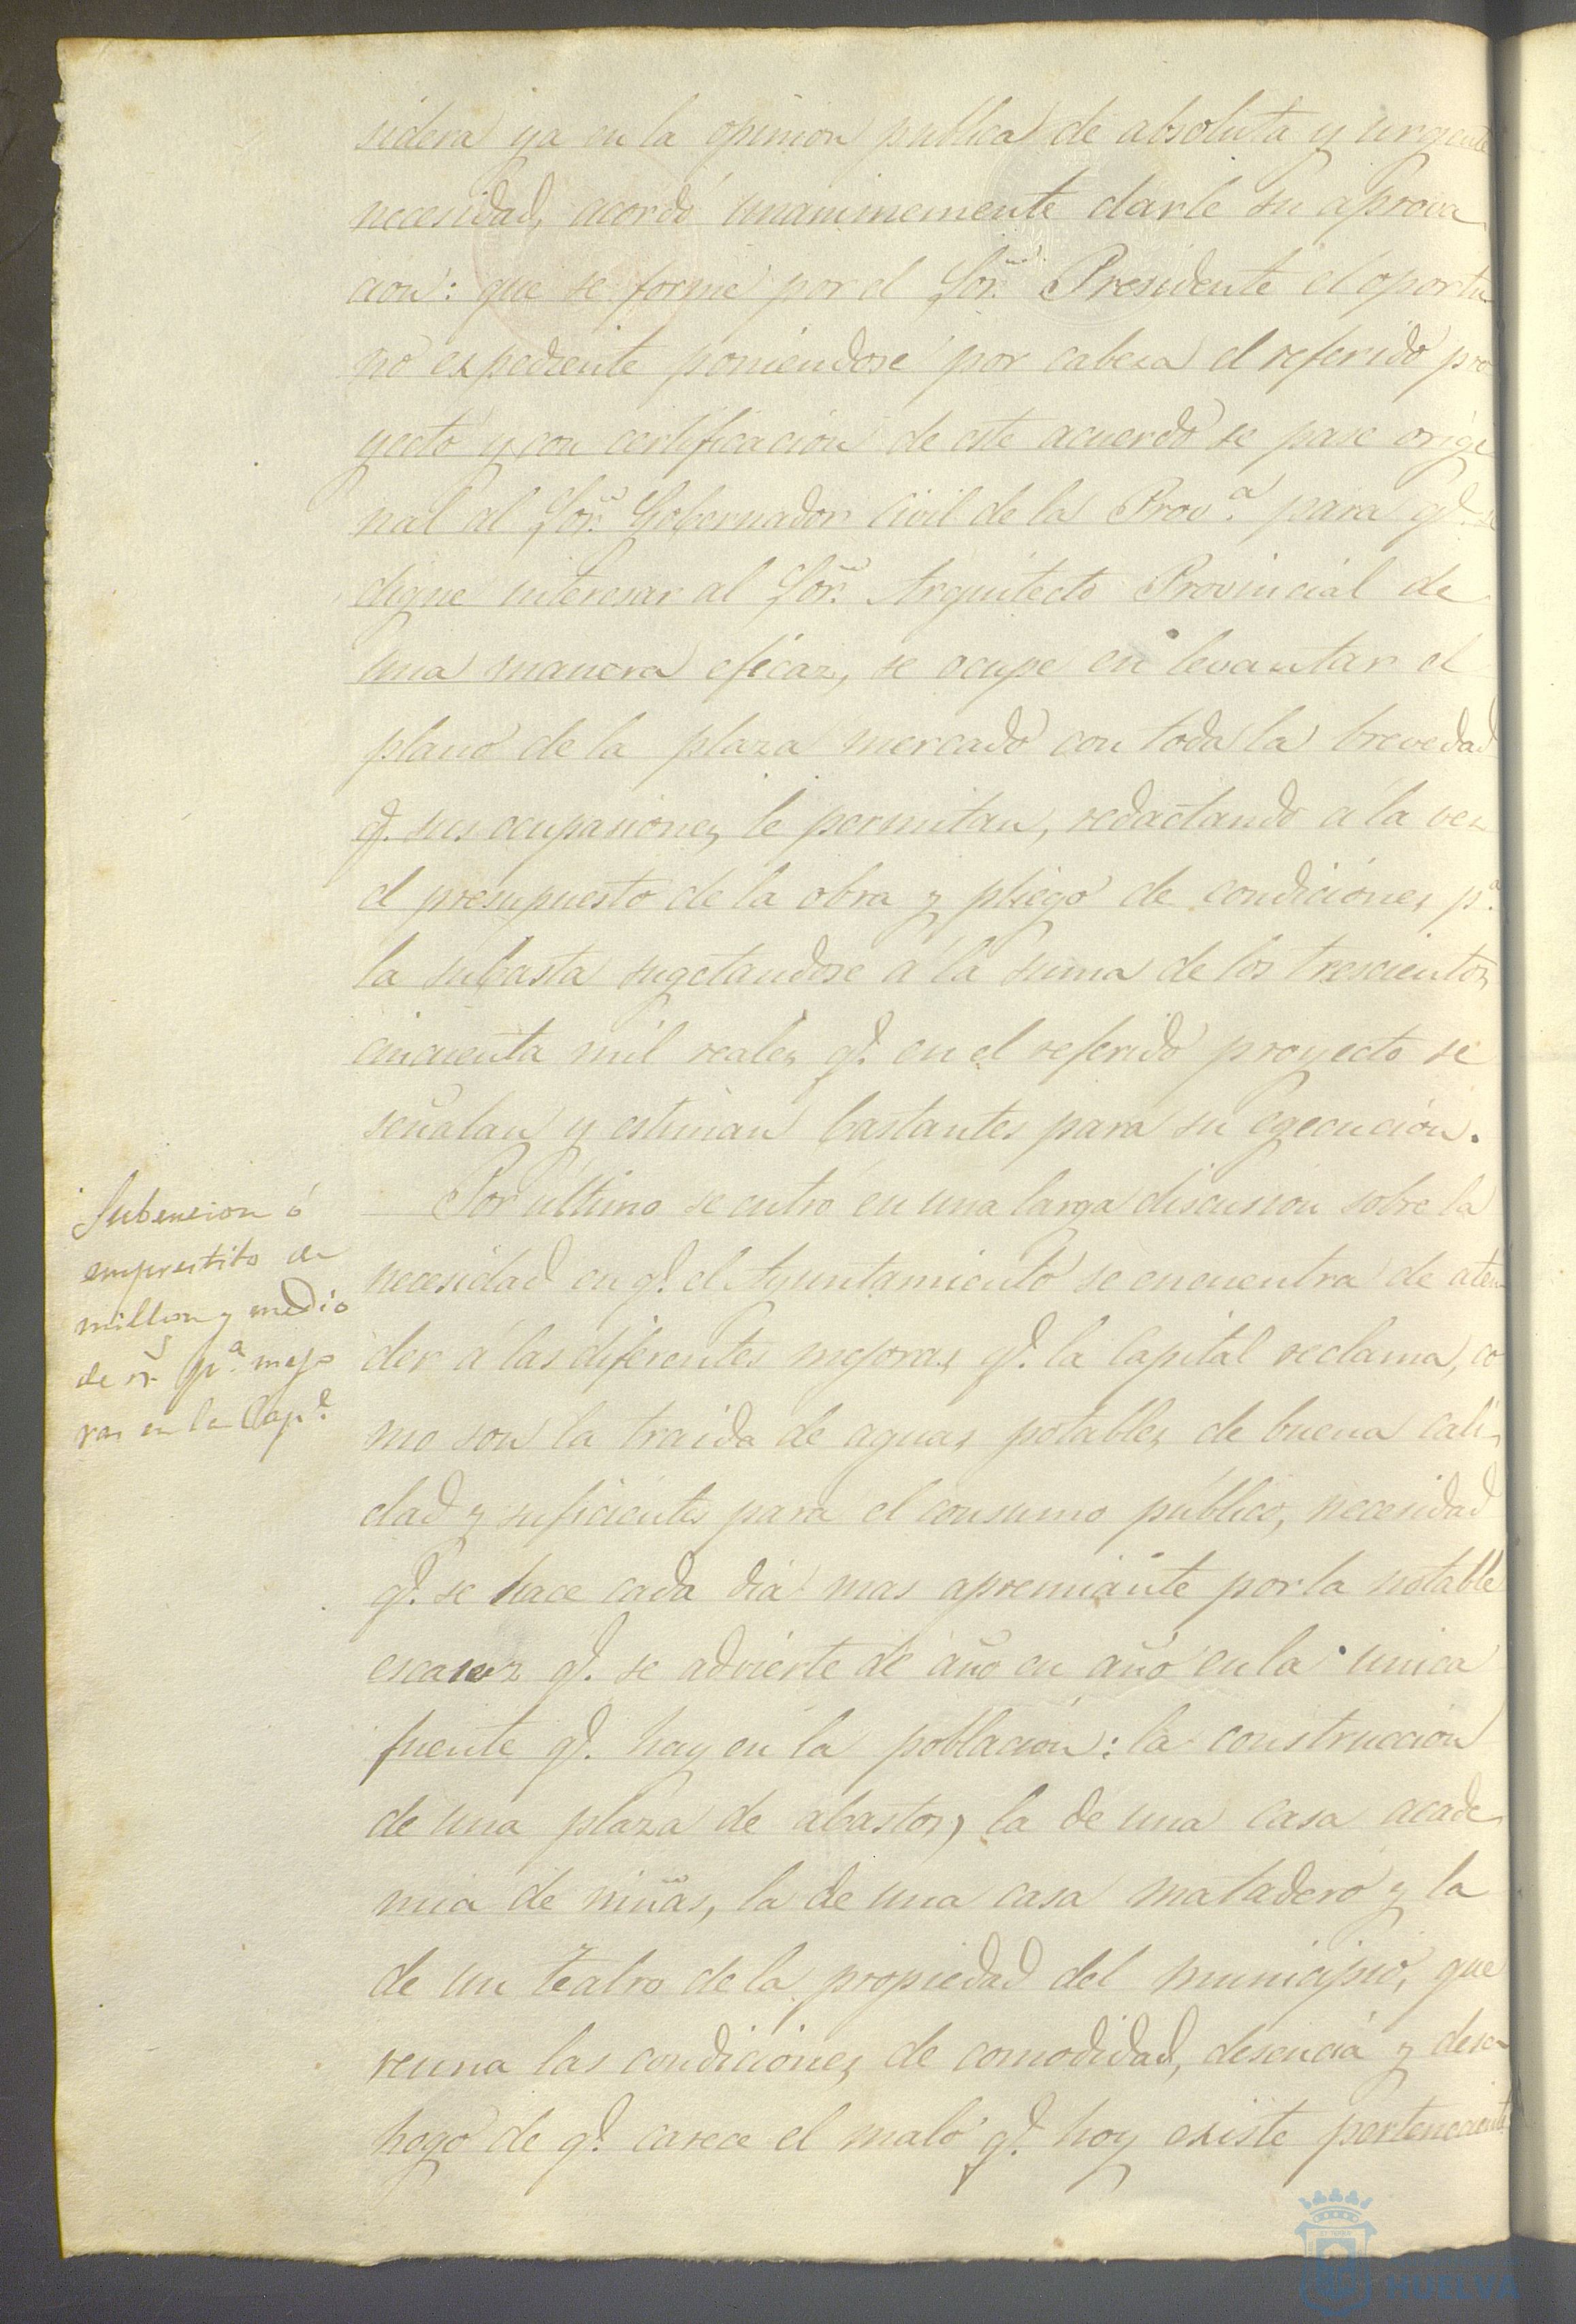 sidera ya en la opinion publica de absoluta y urgente
necesidad, acordó unanimemente darle su aprova
cion: que se forme por el Sor. Presidente el oportu
no expediente poniendose por cabeza el referido pro
yecto y con certificacion de este acuerdo se pase origi
nal al Sor. Gobernador Civil de la Prov.ª para q.e se
digne interesar al Sor. Arquitecto Provincial de
una manera eficaz, se ocupe en levantar el
plano de la plaza mercado con toda la brevedad
q.e sus ocupasiones le permitan, redactando a la vez
el presupuesto de la obra y pliego de condiciones p.ª
la subasta sugetandose a la suma de los trescientos
cincuenta mil reales q.e en el referido proyecto se
señalan y estiman bastantes para su egecucion.
Por último se entró en una larga discusion sobre la
necesidad en q.e el Ayuntamiento se encuentra de aten
der a las diferentes mejoras q.e la Capital reclama, co
mo son la traida de aguas potables de buena cali
dad y suficientes para el consumo público, necesidad
q.e se hace cada dia mas apremiante por la notable
escasez q.e se advierte de año en año en la unica
fuente q.e hay en la poblacion: la construccion
de una plaza de abastos, la de una casa acade
mia de niñas, la de una casa matadero y la
de un teatro de la propiedad del municipio, que
reuna las condiciones de comodidad, desencia y desa
hogo de q.e carece el malo q.e hoy existe perteneciente
Subencion ó
emprestito de
millon y medio
de rs. p.ª mejo
ras en la Cap.l
HUELVA